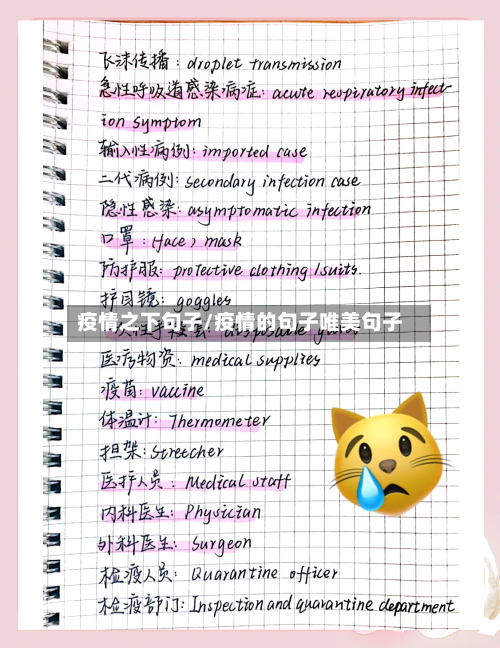 飞沫传播：droplet transmission
急性呼吸道感染病症：acute respiratory infect-
ion symptom
输入性病例：imported case
二代病例：secondary infection case
隐性感染：asymptomatic infection
口罩：(face) mask
防护服：protective clothing / suits.
护目镜：goggles
疫情之下句子/疫情的句子唯美句子
医疗物资：medical supplies
疫苗：vaccine
体温计：Thermometer
担架：Stretcher
医护人员：Medical staff
内科医生：Physician
外科医生：Surgeon
检疫人员：Quarantine officer
检疫部门：Inspection and quarantine department